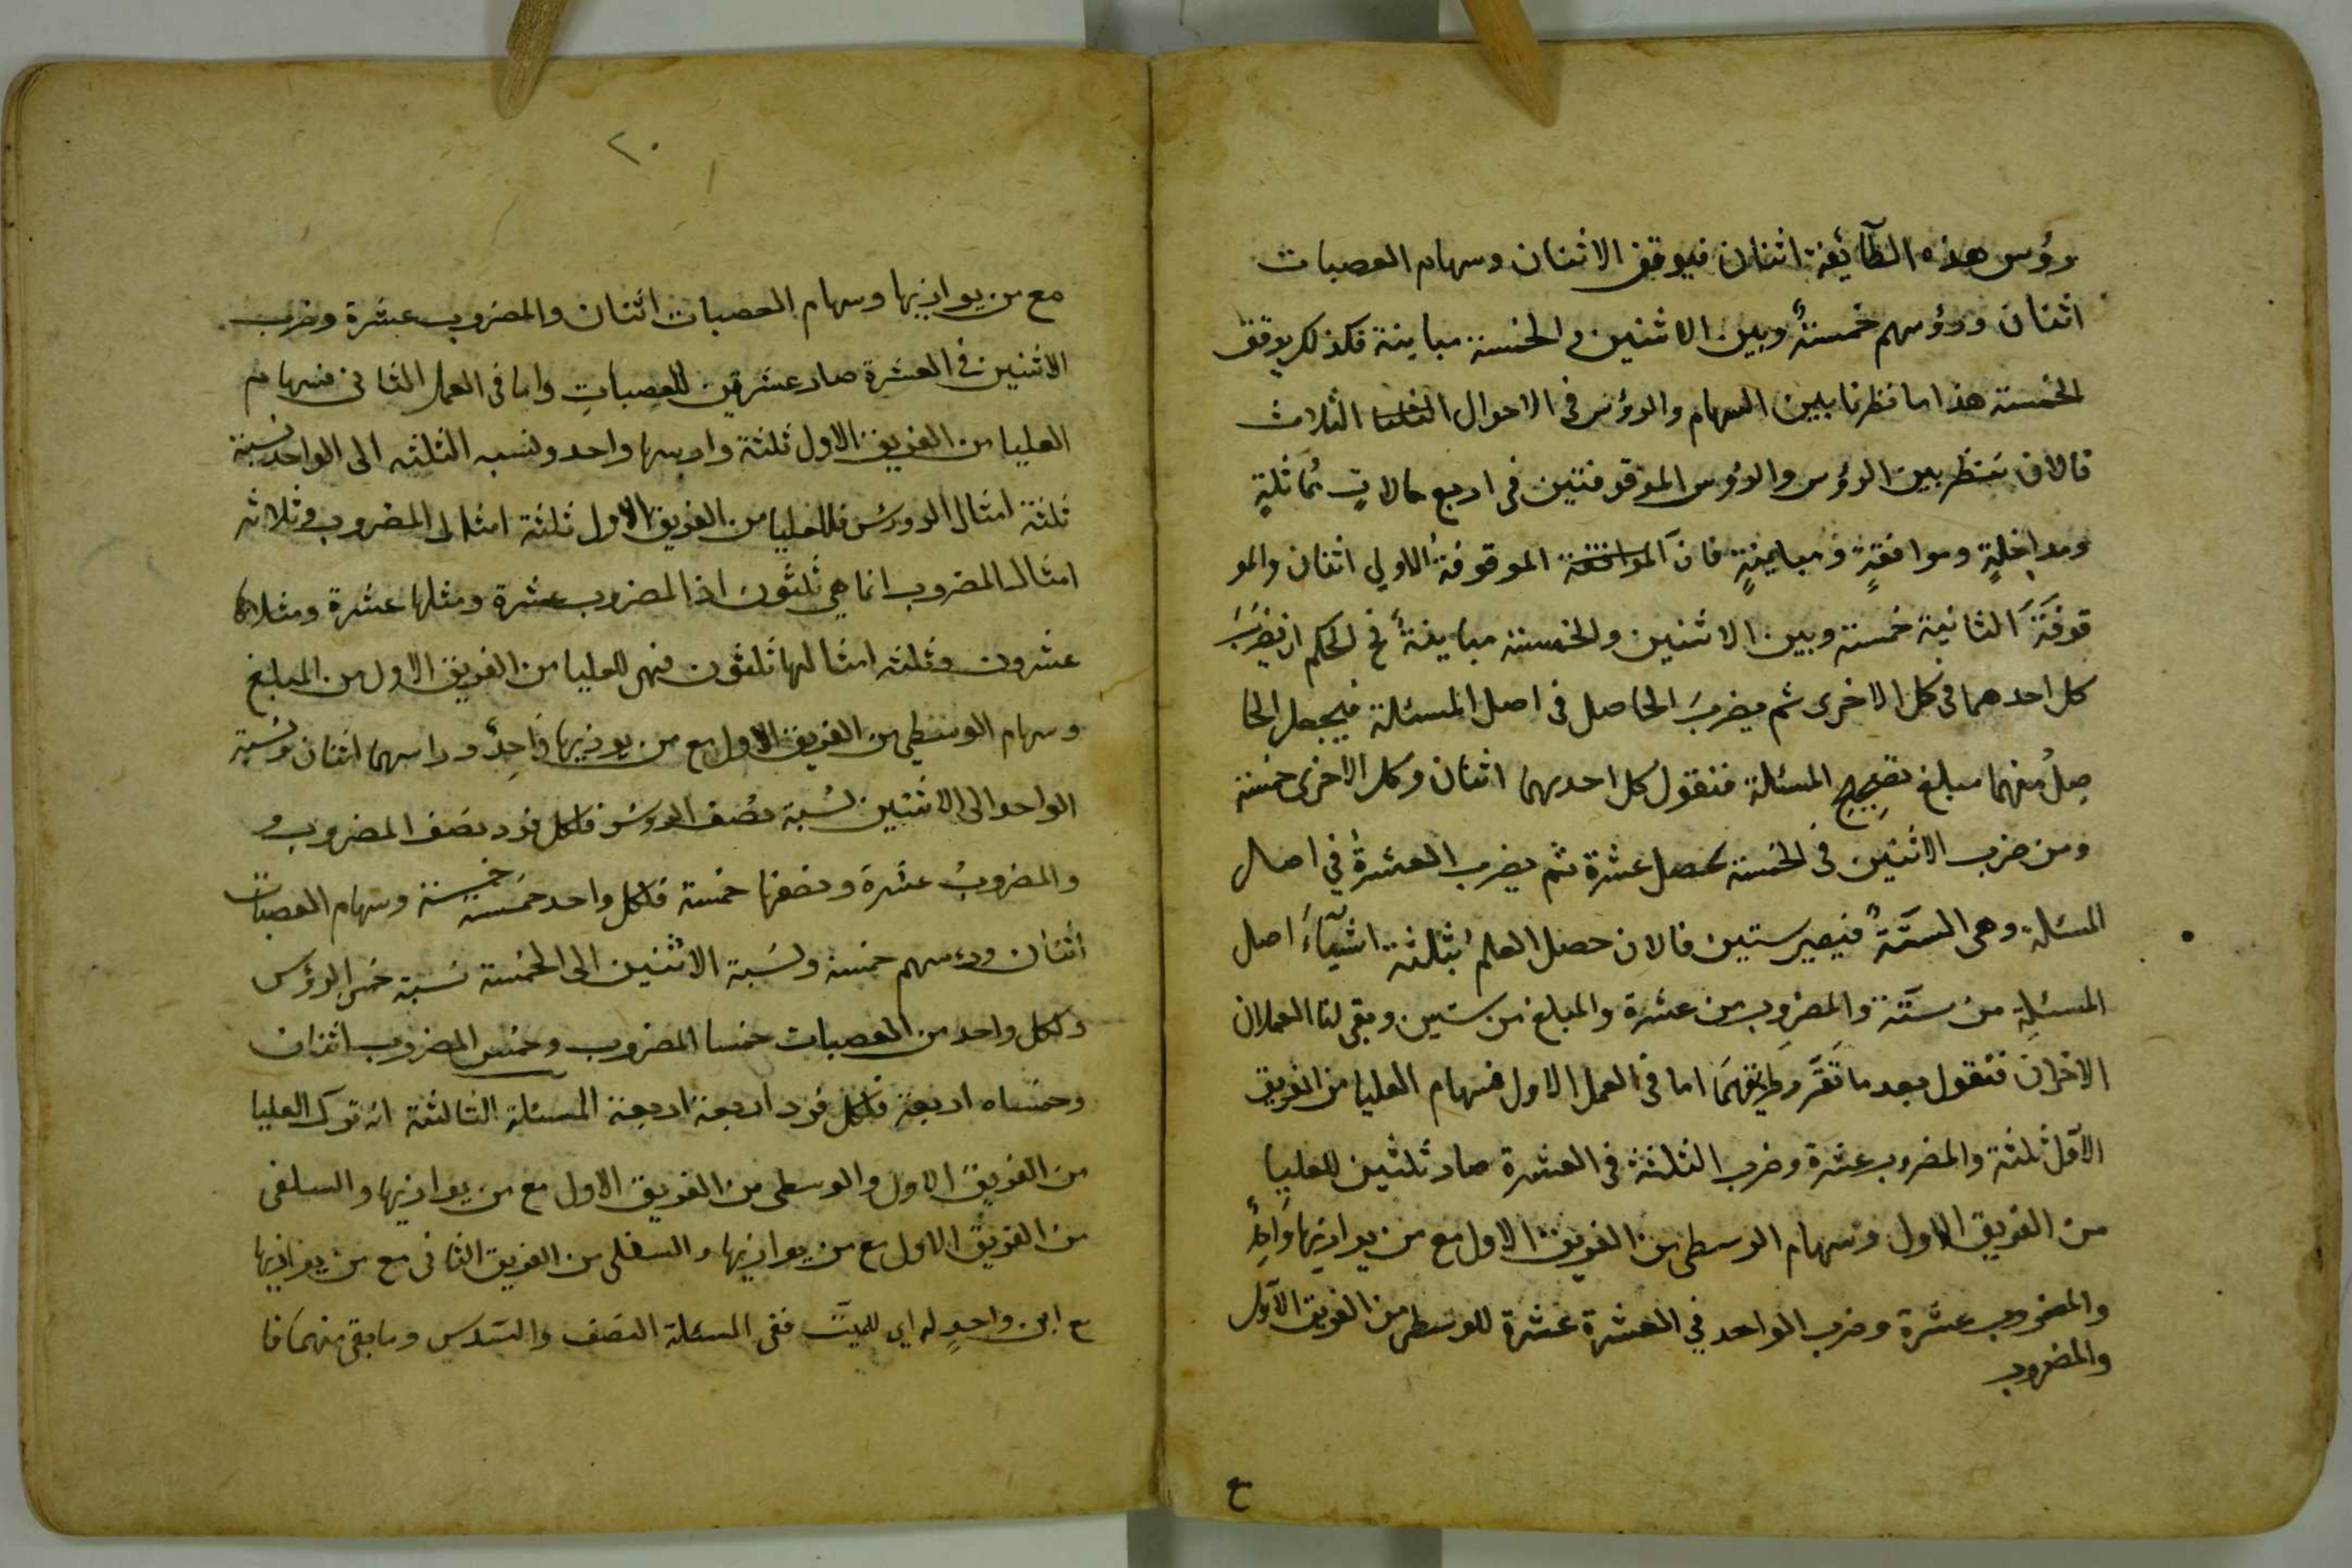 رؤس هذه الطآئفة اثنان فيوقف الاثنان وسهام العصبات
اثنان ورؤسهم خمسةٌ وبين الاثنين والخمسة مباينة فكذلك يوقف
الخمسة هذا ما نظرنا بين السهام والرؤس فى الاحوال الثلاث
فالان ننظر بين الرؤس والرؤس الموقوفتين فى اربع حالاتٍ مُماثلةٍ
ومداخلةٍ وموافقةٍ ومباينةٍ فانّ الموقوفة الاولى اثنان والمو
قوفَةَ الثانية خمسة وبين الاثنين والخمسة مباينةٌ فح الحكم ان يضرَبَ
كل احدهما فى كل الاخرى ثم يضربَ الحاصل فى اصل المسئلة فيجعل الحا
صِلُ منهما مبلغ تصحِيحِ المسئلة فنقول كل احديهما اثنان وكل الاخرى خمسة
ومن ضرب الاثنين فى الخمسة يحصل عشرة ثم يضرب العشرةُ في اصل
المسئلة وهى الستّةُ فيصير ستين فالان حصل العلم بثلثة اشيآءَ اصل
المسئلةِ من ستّة والمضروب من عشرة والمبلغ من ستين وبقى لنا العملان
الاخران فنقول بعد ما تَقَرّر طريقهمَا اما فى العمل الاول فسهام العليا من الفريق
الاوّل ثلثة والمضروب عشرة وضرب الثلثة فى العشرة صار ثلثين للعليا
من الفريق الاول وسهام الوسطى من الفريق الاول مع من يوازيها وَاحِدٌ
والمضروب عشرة وضرب الواحد في العشرة عشرة للوسطى من الفريق الاوّل
والمضروب
ع
٢٠
مع من يوازيها وسهام العصبات اثنان والمضروب عشرة وضرب
الاثنين فى العشرة صار عشرين للعصباتِ واما فى العمل الثانى فسهام
العليا من الفريق الاول ثلثة وراسها واحد ونسبه الثلثه الى الواحد نسبة
ثلثة امثال الرؤس فللعليا من الفريق الاول ثلثة امثال المضروب وثلاثه
امثال المضروب انما هى ثلثون اذ المضروب عشرة ومثلها عشرة ومثلاها
عشرون وثلثه امثالها ثلثون فهى للعليا من الفريق الاول من المبلغ
وسهام الوسطى من الفريق الاول مع من يوزيها وَاحِدٌ وراسهما اثنان ونسبة
الواحد الى الاثنين نسْبة نصْف الرؤس فلكل فرد نصف المضروب و
والمضروبُ عشرة ونصفها خمسة فلكل واحد خمسة خمسة وسهام العصبات
اثنان ورءسهم خمسة ونسَبة الاثنين الى الخمسة نسبة خمسى الرؤس
ولكل واحد من العصبات خمسا المضروب وخمس المضروب اثنان
وخمساه اربعة فلكل فرد اربعة اربعة المسئلة الثالثة انه ترك العليا
من الفريق الاول والوسطى من الفريق الاول مع من يوازيها والسلفى
من الفريق الاول مع من يوازيها والسفلى من الفريق الثانى مع من يوازيها
ع ابن واحدٍ له اي للميّت ففى المسئلة النصف والسّدس وما بقى منهما فا